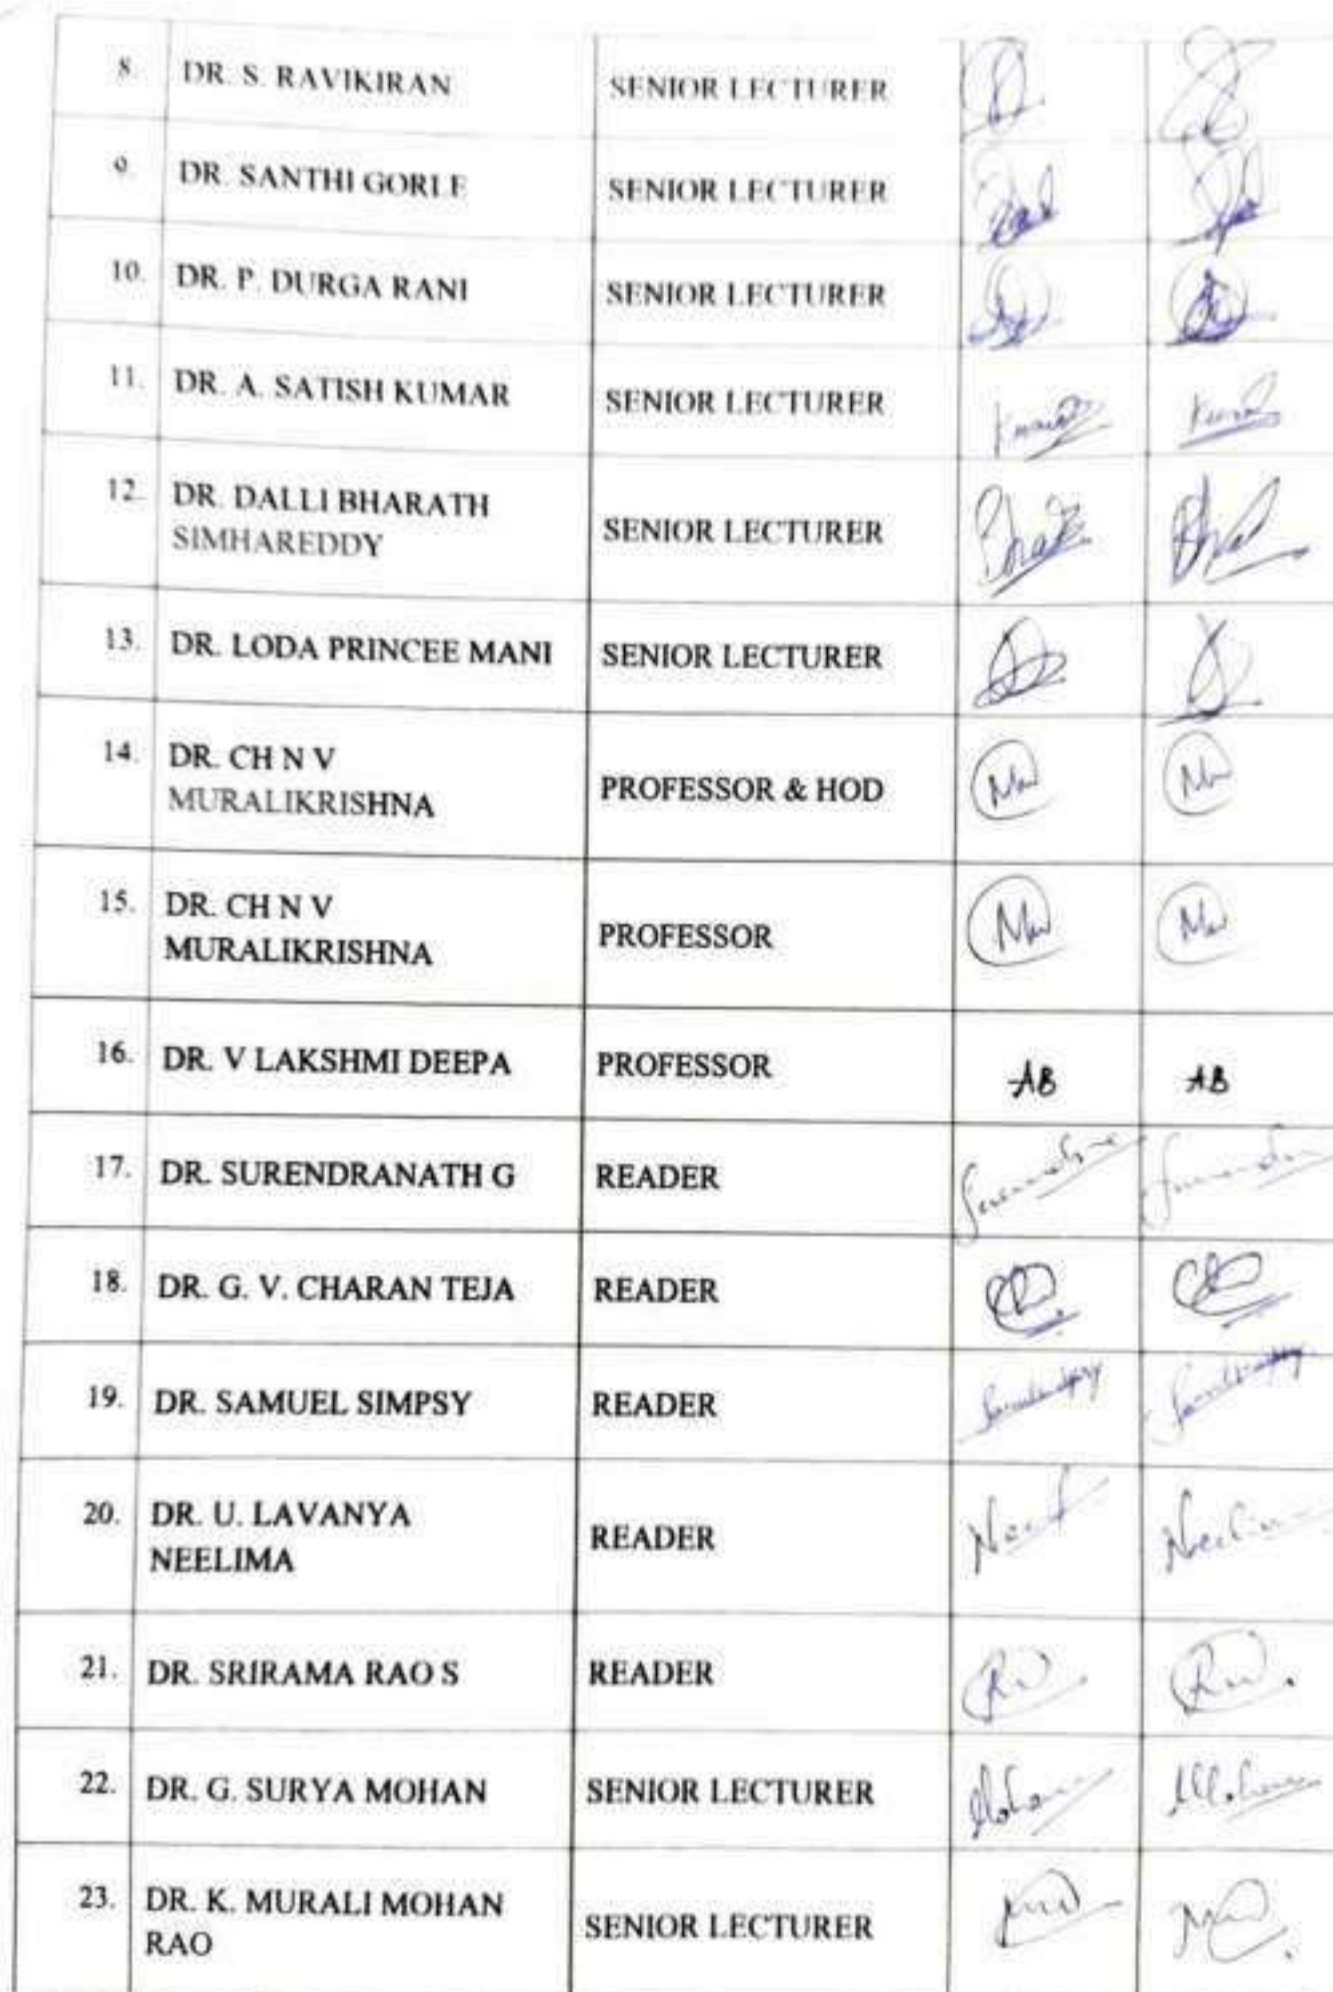 8. DR. S. RAVIKIRAN SENIOR LECTURER
9. DR. SANTHI GORLE SENIOR LECTURER
10. DR. P. DURGA RANI SENIOR LECTURER
11. DR. A. SATISH KUMAR SENIOR LECTURER
12. DR. DALLI BHARATH
SIMHAREDDY SENIOR LECTURER
13. DR. LODA PRINCEE MANI SENIOR LECTURER
14. DR. CH N V
MURALIKRISHNA PROFESSOR & HOD
15. DR. CH N V
MURALIKRISHNA PROFESSOR
16. DR. V LAKSHMI DEEPA PROFESSOR AB AB
17. DR. SURENDRANATH G READER
18. DR. G. V. CHARAN TEJA READER
19. DR. SAMUEL SIMPSY READER
20. DR. U. LAVANYA
NEELIMA READER
21. DR. SRIRAMA RAO S READER
22. DR. G. SURYA MOHAN SENIOR LECTURER
23. DR. K. MURALI MOHAN
RAO SENIOR LECTURER